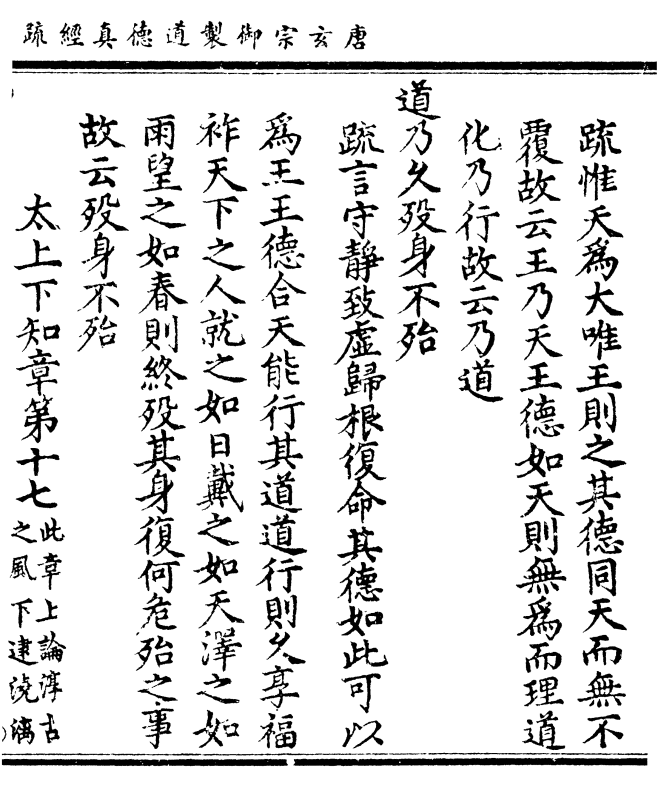 唐玄宗御製道德真經疏
疏惟天為大唯王則之其德同天而無不
覆故云王乃天王德如天則無為而理道
化乃行故云乃道
道乃久歿身不殆
疏言守靜致虛歸根復命其德如此可以
為王王德合天能行其道道行則久享福
祚天下之人就之如日戴之如天澤之如
雨望之如春則終歿其身復何危殆之事
故云歿身不殆
太上下知章第十七此章上論淳古
之風下逮澆漓